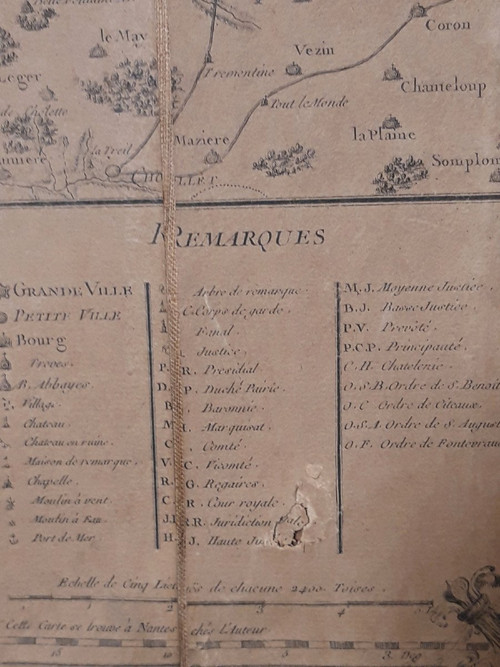 le May
Coron
Vezin
Tremontine
Chanteloup
Tout le Monde
la Plaine
Maziere
la Treil
Somplon
CHOLLET
REMARQUES
GRANDE VILLE
PETITE VILLE
Bourg
Treves.
B. Abbayes
Village.
Chateau.
Chateau en ruine.
Maison de remarque.
Chapelle.
Moulin à vent.
Moulin à Eau.
Port de Mer.
Arbre de remarque.
C. Corps de garde.
Fanal.
Justice.
P. R. Presidial.
D. P. Duché Pairie.
B. Baronnie.
M. Marquisat.
C. Comté.
V. C. Vicomté.
R. G. Regaires.
C. R. Cour royale.
J.R.R. Juridiction
H. J. Haute
M.J. Moyenne Justice.
B.J. Basse Justice.
P.V. Prevôté.
P.C.P. Principauté.
C.H. Chatelenie.
O.S.B. Ordre de S. Benoit
O.C Ordre de Citeaux.
O.S.A Ordre de S. August
O.F. Ordre de Fontevrau
Echelle de Cinq de chacune 2400 Toises.
2 3 4
Cette Carte se trouve à Nantes chés l'Auteur